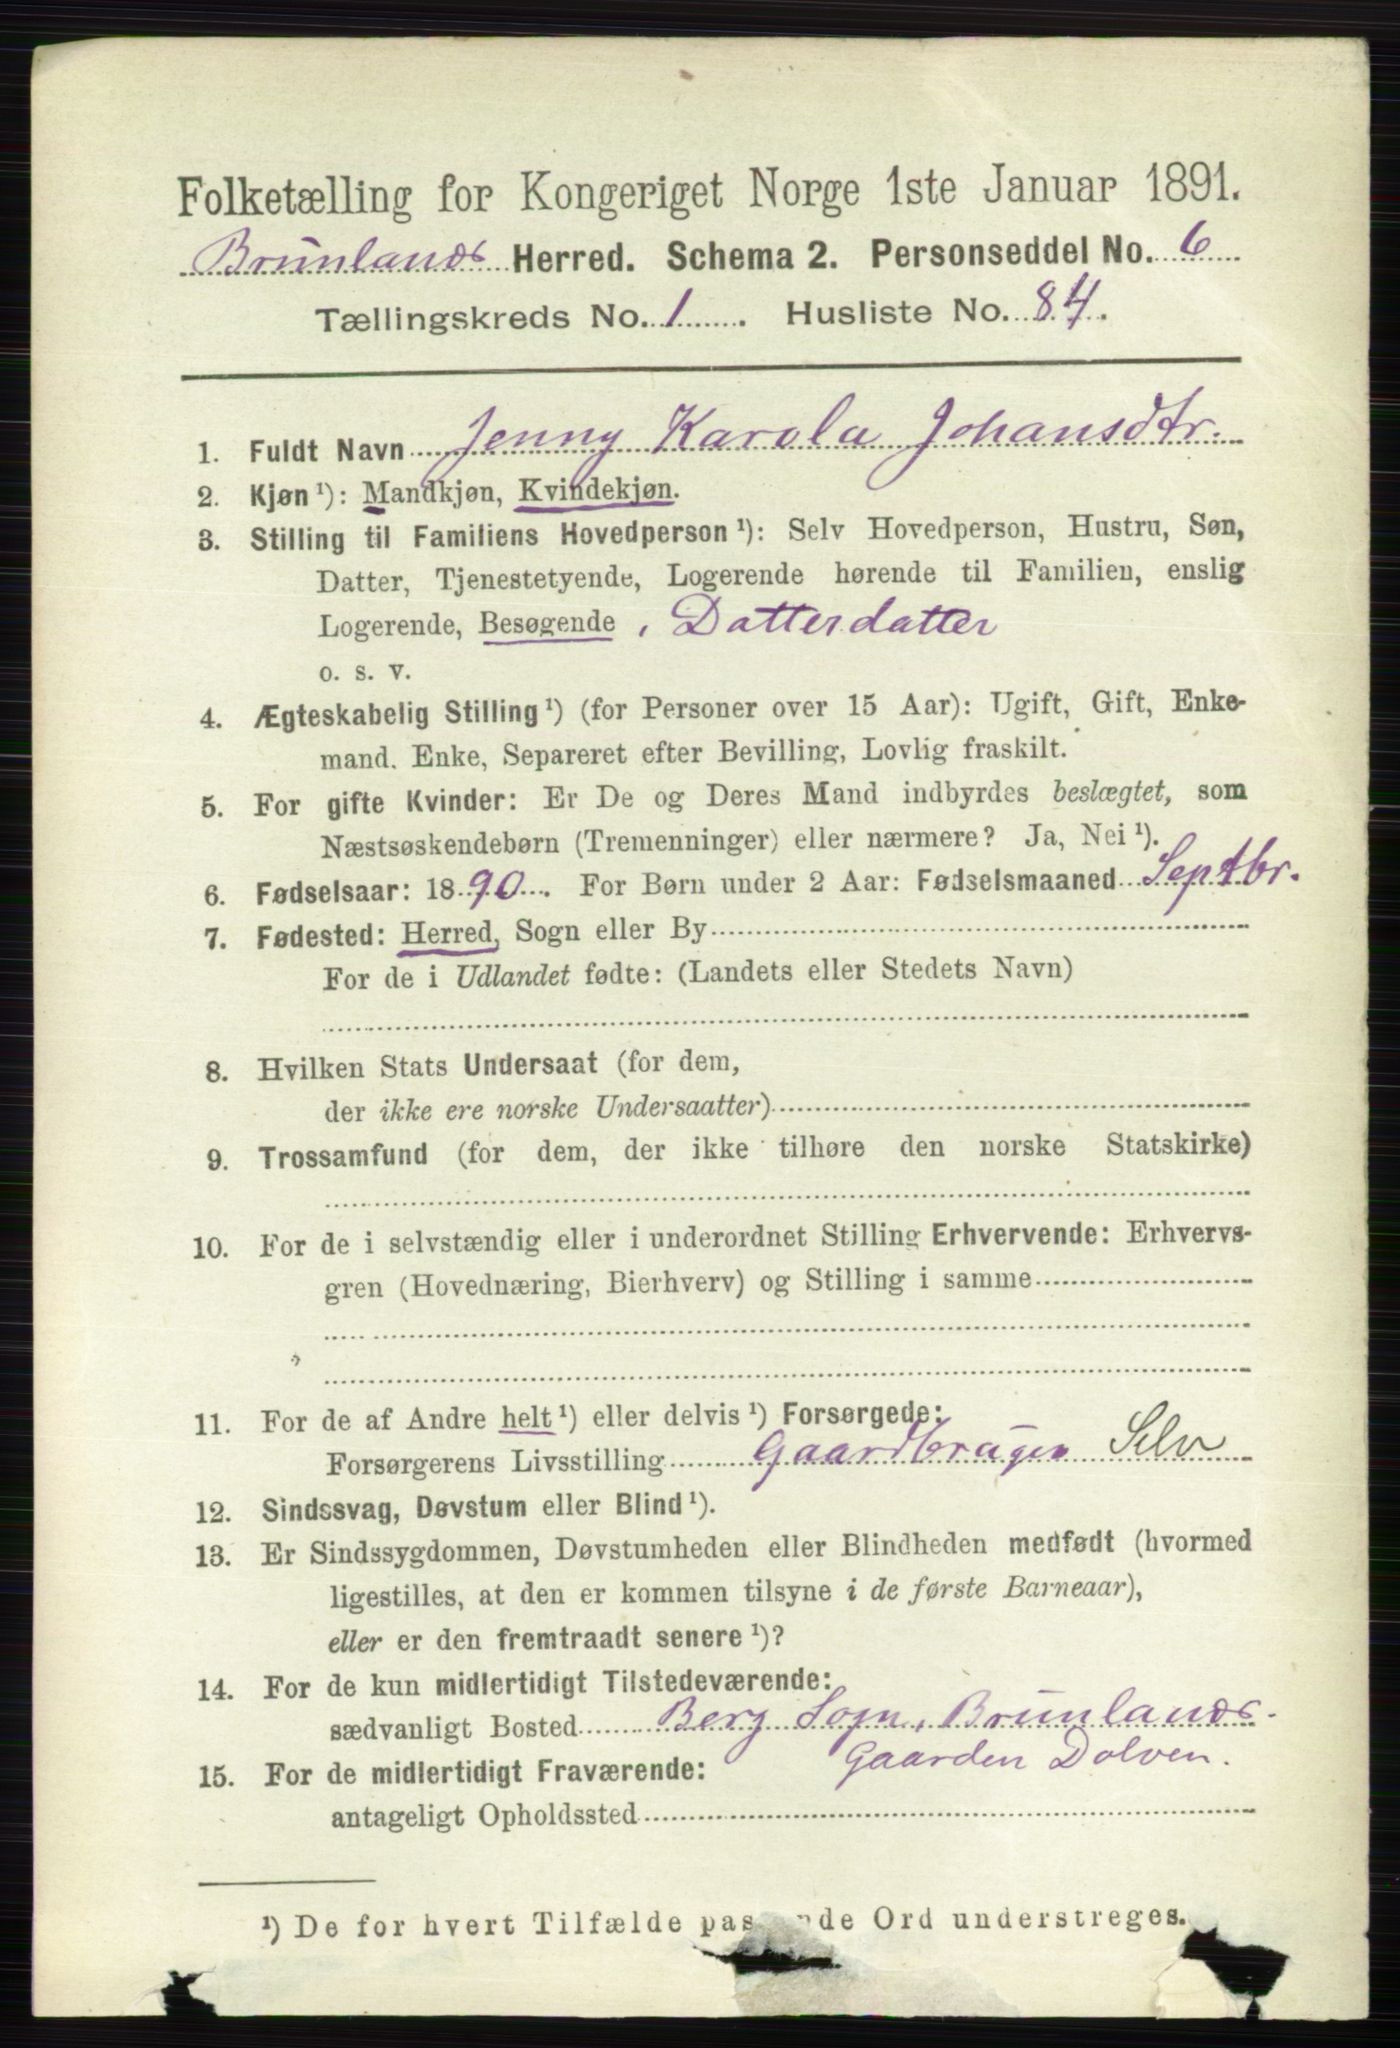 Folketælling for Kongeriget Norge 1ste Januar 1891.
Brunlanæs Herred. Schema 2. Personseddel No. 6
Tællingskreds No. 1. Husliste No. 84.
1. Fuldt Navn Jenny Karola Johansdtr.
2. Kjøn ¹): Mandkjøn, Kvindekjøn.
3. Stilling til Familiens Hovedperson ¹): Selv Hovedperson, Hustru, Søn,
Datter, Tjenestetyende, Logerende hørende til Familien, enslig
Logerende, Besøgende, Datterdatter
o. s. v.
4. Ægteskabelig Stilling ¹) (for Personer over 15 Aar): Ugift, Gift, Enke-
mand. Enke, Separeret efter Bevilling, Lovlig fraskilt.
5. For gifte Kvinder: Er De og Deres Mand indbyrdes beslægtet, som
Næstsøskendebørn (Tremenninger) eller nærmere? Ja, Nei ¹).
6. Fødselsaar: 1890. For Børn under 2 Aar: Fødselsmaaned Septbr.
7. Fødested: Herred, Sogn eller By
For de i Udlandet fødte: (Landets eller Stedets Navn)
8. Hvilken Stats Undersaat (for dem,
der ikke ere norske Undersaatter)
9. Trossamfund (for dem, der ikke tilhøre den norske Statskirke)
10. For de i selvstændig eller i underordnet Stilling Erhvervende: Erhvervs-
gren (Hovednæring, Bierhverv) og Stilling i samme
11. For de af Andre helt ¹) eller delvis ¹) Forsørgede:
Forsørgerens Livsstilling Gaardbruger Selv
12. Sindssvag, Døvstum eller Blind ¹).
13. Er Sindssygdommen, Døvstumheden eller Blindheden medfødt (hvormed
ligestilles, at den er kommen tilsyne i de første Barneaar),
eller er den fremtraadt senere ¹)?
14. For de kun midlertidigt Tilstedeværende:
sædvanligt Bosted Berg Sogn, Brunlanæs.
Gaarden Dolven.
15. For de midlertidigt Fraværende:
antageligt Opholdssted
¹) De for hvert Tilfælde pas nde Ord understreges.